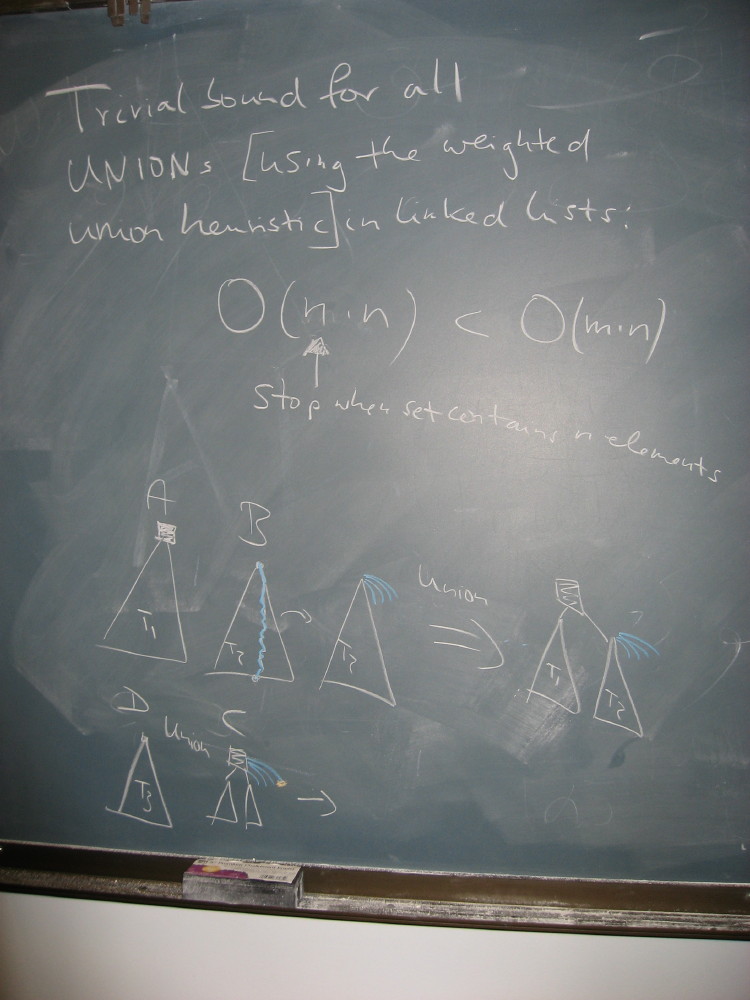 Trivial bound for all
UNIONs [using the weighted
union heuristic] in linked lists:
O(n·n) < O(m·n)
Stop when set contains n elements
A
B
T1
T2
T2
Union
T1
T2
D
Union
C
T3